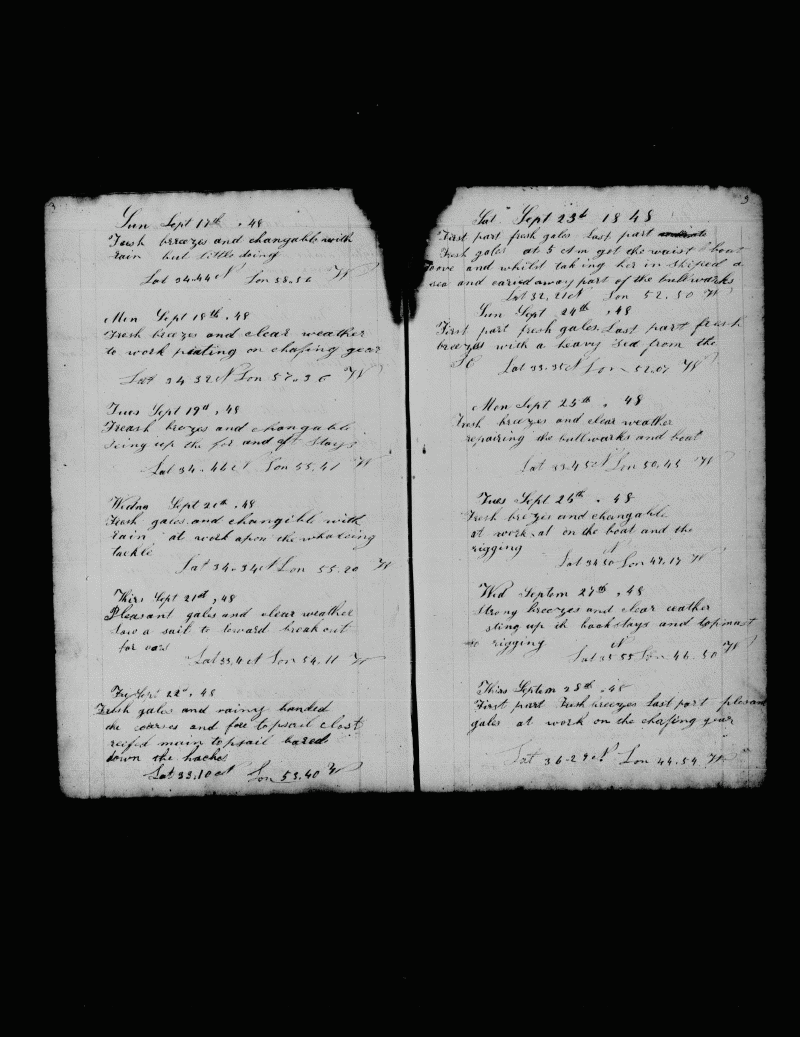 Sun Sept 17th, 48
Fresh breezes and changable with
rain but little doing
Lat 34.44 N Lon 58.56 W
Mon Sept 18th, 48
Fresh breezes and clear weather
to work puting on chafing gear
Lat 34 32 N Lon 57.36 W
Tues Sept 19th, 48
Freash brezes and changable
seing up the for and aft stays
Lat 34.44 N Lon 55.41 W
Wedna Sept 20th, 48
Fresh gales and changible with
rain at work apon the whaleing
tackle
Lat 34.34 N Lon 55.20 W
Thirs Sept 21st, 48
Pleasant gales and clear weather
Saw a sail to leward break out
for oars
Lat 33.4 N Lon 54.11 W
Fry Sept 22d, 48
Fresh gales and rainy handed
the corses and fore topsail close
reefed main topsail bared
down the haches
Lat 33.10 N Lon 53.40 W
3
Sat Sept 23d 1848
First part fresh gales Last part
Fresh gales at 5 Am got the waist boat
stove and whilst taking her in shiped a
sea and caried away part of the bullwarks
Lat 32.21 N Lon 52.50 W
Sun Sept 24th, 48
First part fresh gales. Last part fresh
breezes with a heavy sea from the
Lat 33.35 N Lon 52.07 W
Mon Sept 25th, 48
Fresh breezes and clear weather
repairing the bullwarks and boat
Lat 33.45 N Lon 50.45 W
Tues Sept 26th, 48
Fresh brezes and changable
at work at on the boat and the
rigging
Lat 34 50 N Lon 49.17 W
Wed Septem 27th, 48
Strong breezes and clear weather
sting up th backstays and topmast
rigging
Lat 35 55 N Lon 46.50 W
Thirs Septem 28th, 48
First part Fresh breezes Last part plesant
gales at work on the chafing gear
Lat 36.29 N Lon 44.54 W